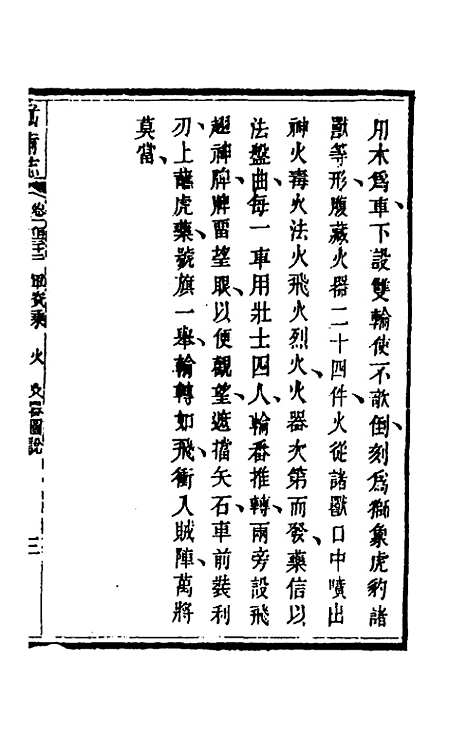 用木爲車下設雙輪使不敧倒刻爲獅象虎豹諸
獸等形腹藏火器二十四件火從諸獸口中噴出
神火毒火法火飛火烈火火器次第而發藥信以
法盤曲每一車用壯士四人輪番推轉兩旁設飛
翅神牌牌畱望眼以便觀望遮擋矢石車前裝利
刃上蘸虎藥號旗一舉輪轉如飛衝入賊陣萬將
莫當
武備志 卷一百三十二 軍資乘 火 火器圖說 三